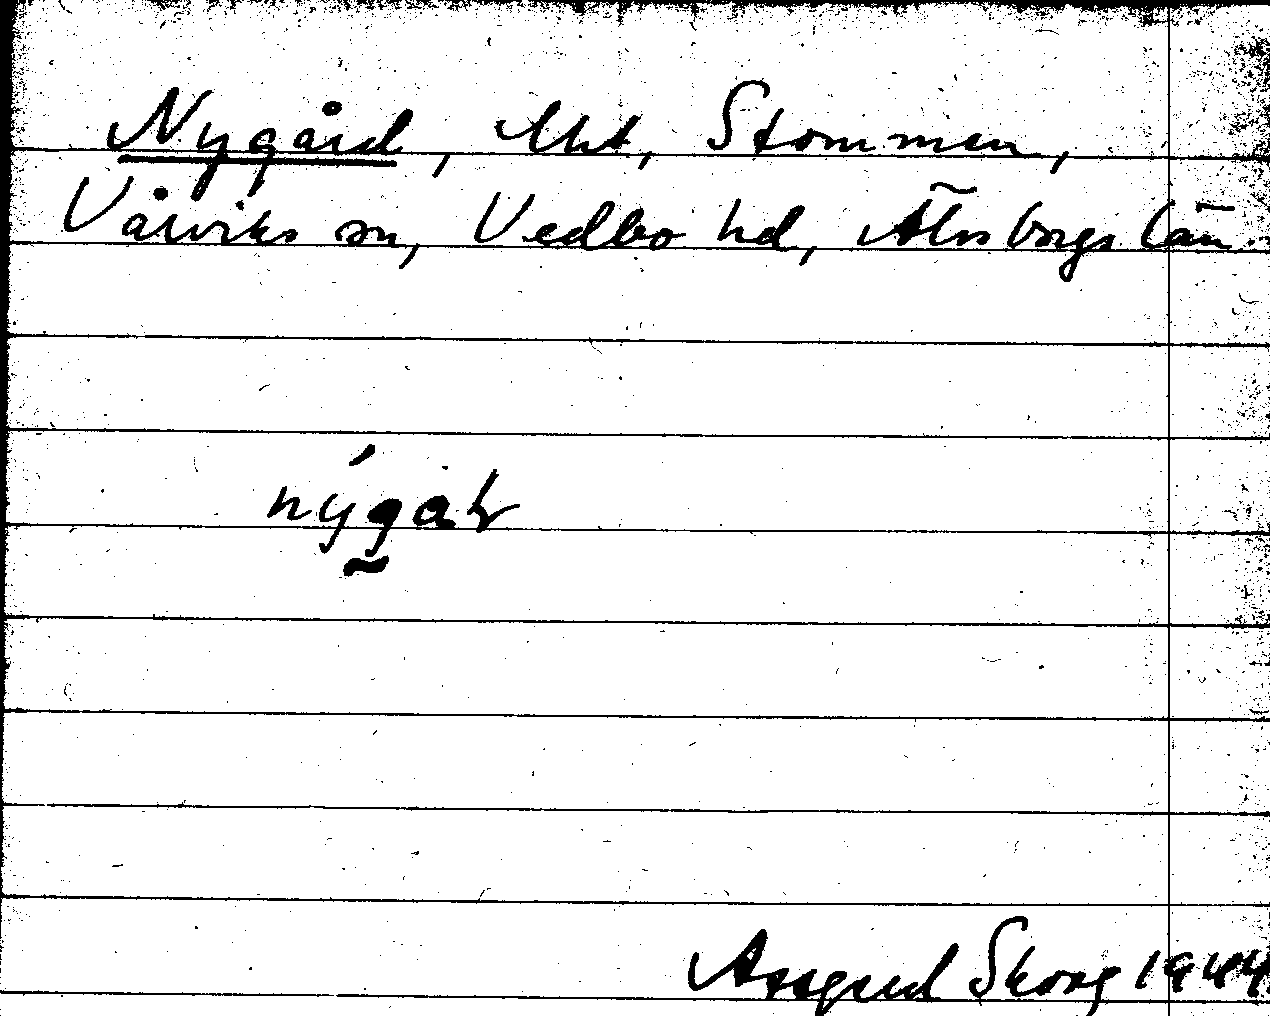 Nygård, lht, Stommen,
Vårviks sn, Vedbo hd, Älvsborgs län.
nýgaɽ
Assgerd Skoog 1944